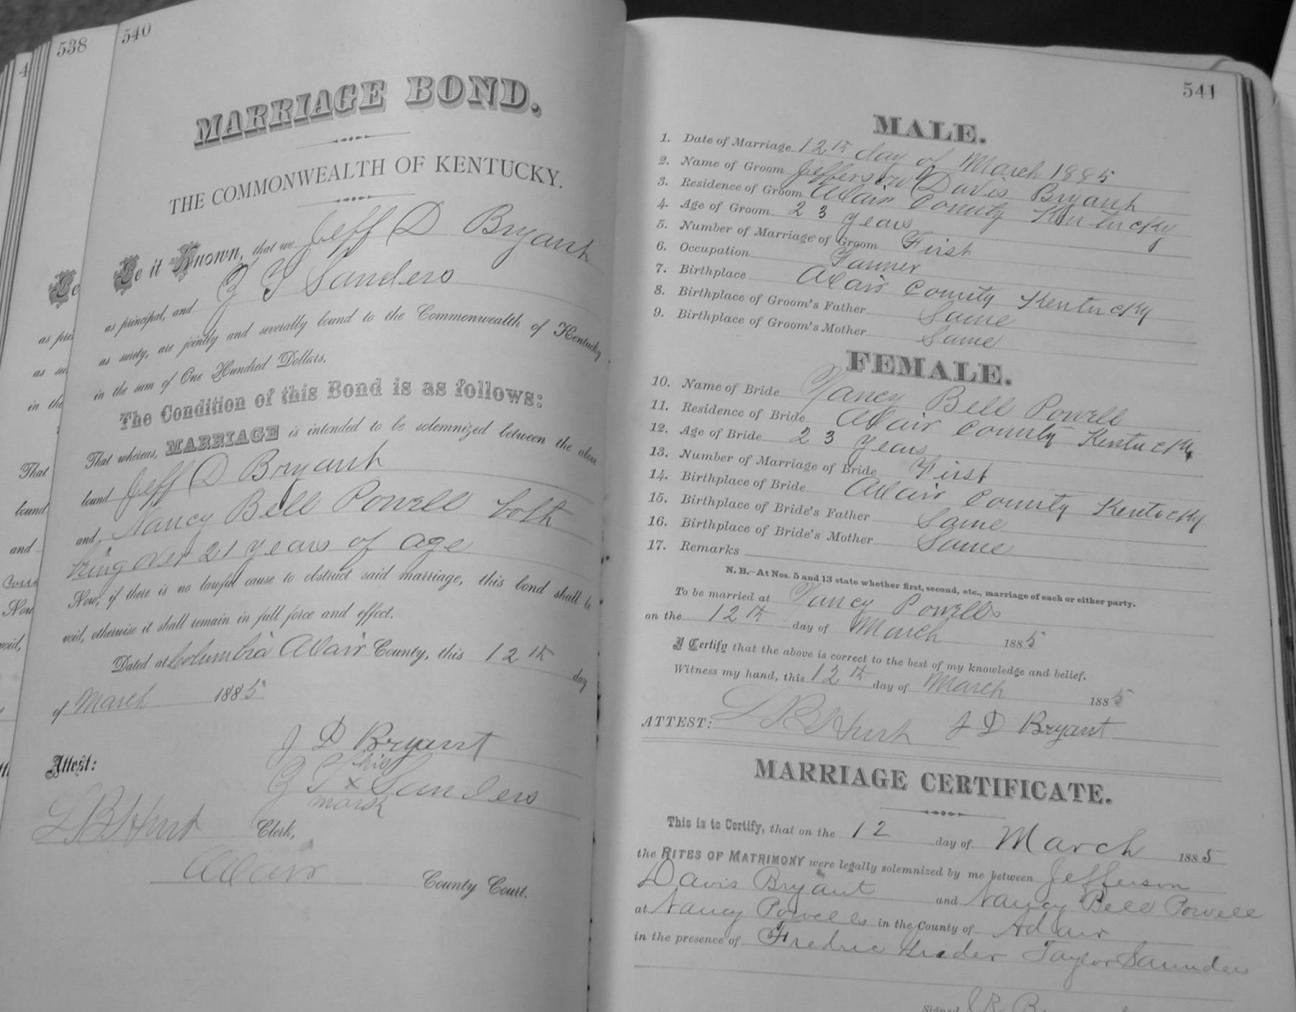 538
540
MARRIAGE BOND.
THE COMMONWEALTH OF KENTUCKY.
Be it Known, that we Jeff D Bryant
as principal, and G T Sanders
as surety, are jointly and severally bound to the Commonwealth of Kentucky
in the sum of One Hundred Dollars.
The Condition of this Bond is as follows:
That whereas, MARRIAGE is intended to be solemnized between the above
bound Jeff D Bryant
and, Nancy Bell Powell both
being over 21 years of age
Now, if there is no lawful cause to obstruct said marriage, this bond shall be
void, otherwise it shall remain in full force and effect.
Dated at Columbia Adair County, this 12th day
of March 1885
J D Bryant
his
G T x Sanders
mark
Attest:
L B Hurt Clerk,
Adair County Court.
541
MALE.
1. Date of Marriage 12th day of March 1885
2. Name of Groom Jefferson Davis Bryant
3. Residence of Groom Adair County Kentucky
4. Age of Groom 23 years
5. Number of Marriage of Groom First
6. Occupation Farmer
7. Birthplace Adair County Kentucky
8. Birthplace of Groom's Father Same
9. Birthplace of Groom's Mother Same
FEMALE.
10. Name of Bride Nancy Bell Powell
11. Residence of Bride Adair County Kentucky
12. Age of Bride 23 years
13. Number of Marriage of Bride First
14. Birthplace of Bride Adair County Kentucky
15. Birthplace of Bride's Father Same
16. Birthplace of Bride's Mother Same
17. Remarks
N. B.—At Nos. 5 and 13 state whether first, second, etc., marriage of each or either party.
To be married at Nancy Powells
on the 12th day of March 1885
I Certify that the above is correct to the best of my knowledge and belief.
Witness my hand, this 12th day of March 1885
ATTEST: L B Hurt J D Bryant
MARRIAGE CERTIFICATE.
This is to Certify, that on the 12 day of March 1885
the RITES OF MATRIMONY were legally solemnized by me between Jefferson
Davis Bryant and Nancy Bell Powell
at Nancy Powells in the County of Adair
in the presence of Fredric Taylor Saunders
Signed